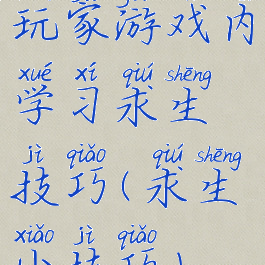 玩家游戏内
xué xí qiú shēng
学习求生
jì qiǎo qiú shēng
技巧(求生
xiǎo jì qiǎo
小技巧)